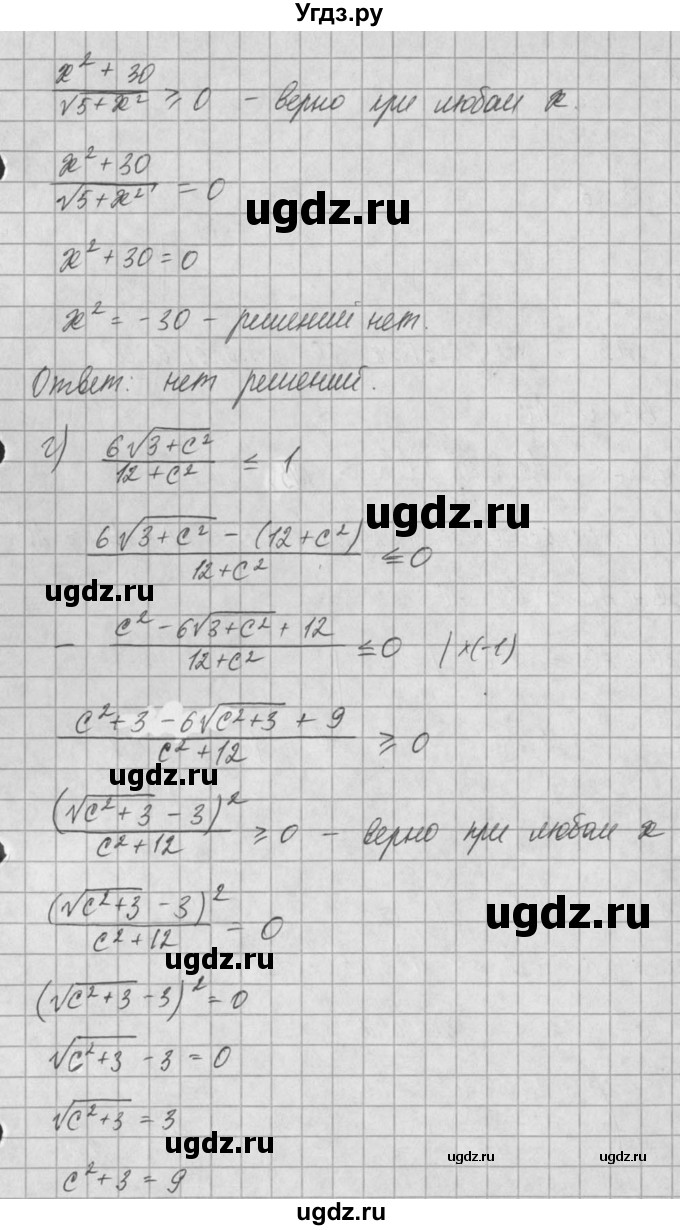 Угдз.ру
x² + 30 / √5+x² ⩾ 0 – верно при любом x.
x² + 30 / √5+x² = 0
ugdz.ru
x² + 30 = 0
x² = -30 – решений нет.
Ответ: нет решений.
г) 6√3+c² / 12+c² ≤ 1
ugdz.ru
6√3+c² – (12+c²) / 12+c² ≤ 0
ugdz.ru
– c² – 6√3+c² + 12 / 12+c² ≤ 0 | ×(-1)
c² + 3 – 6√c²+3 + 9 / c² + 12 ⩾ 0
ugdz.ru
(√c²+3 – 3)² / c² + 12 ⩾ 0 – верно при любом x
(√c²+3 – 3)² / c² + 12 = 0
ugdz.ru
ugdz.ru
(√c²+3 – 3)² = 0
√c²+3 – 3 = 0
√c²+3 = 3
ugdz.ru
ugdz.ru
ugdz.ru
c² + 3 = 9
ugdz.ru